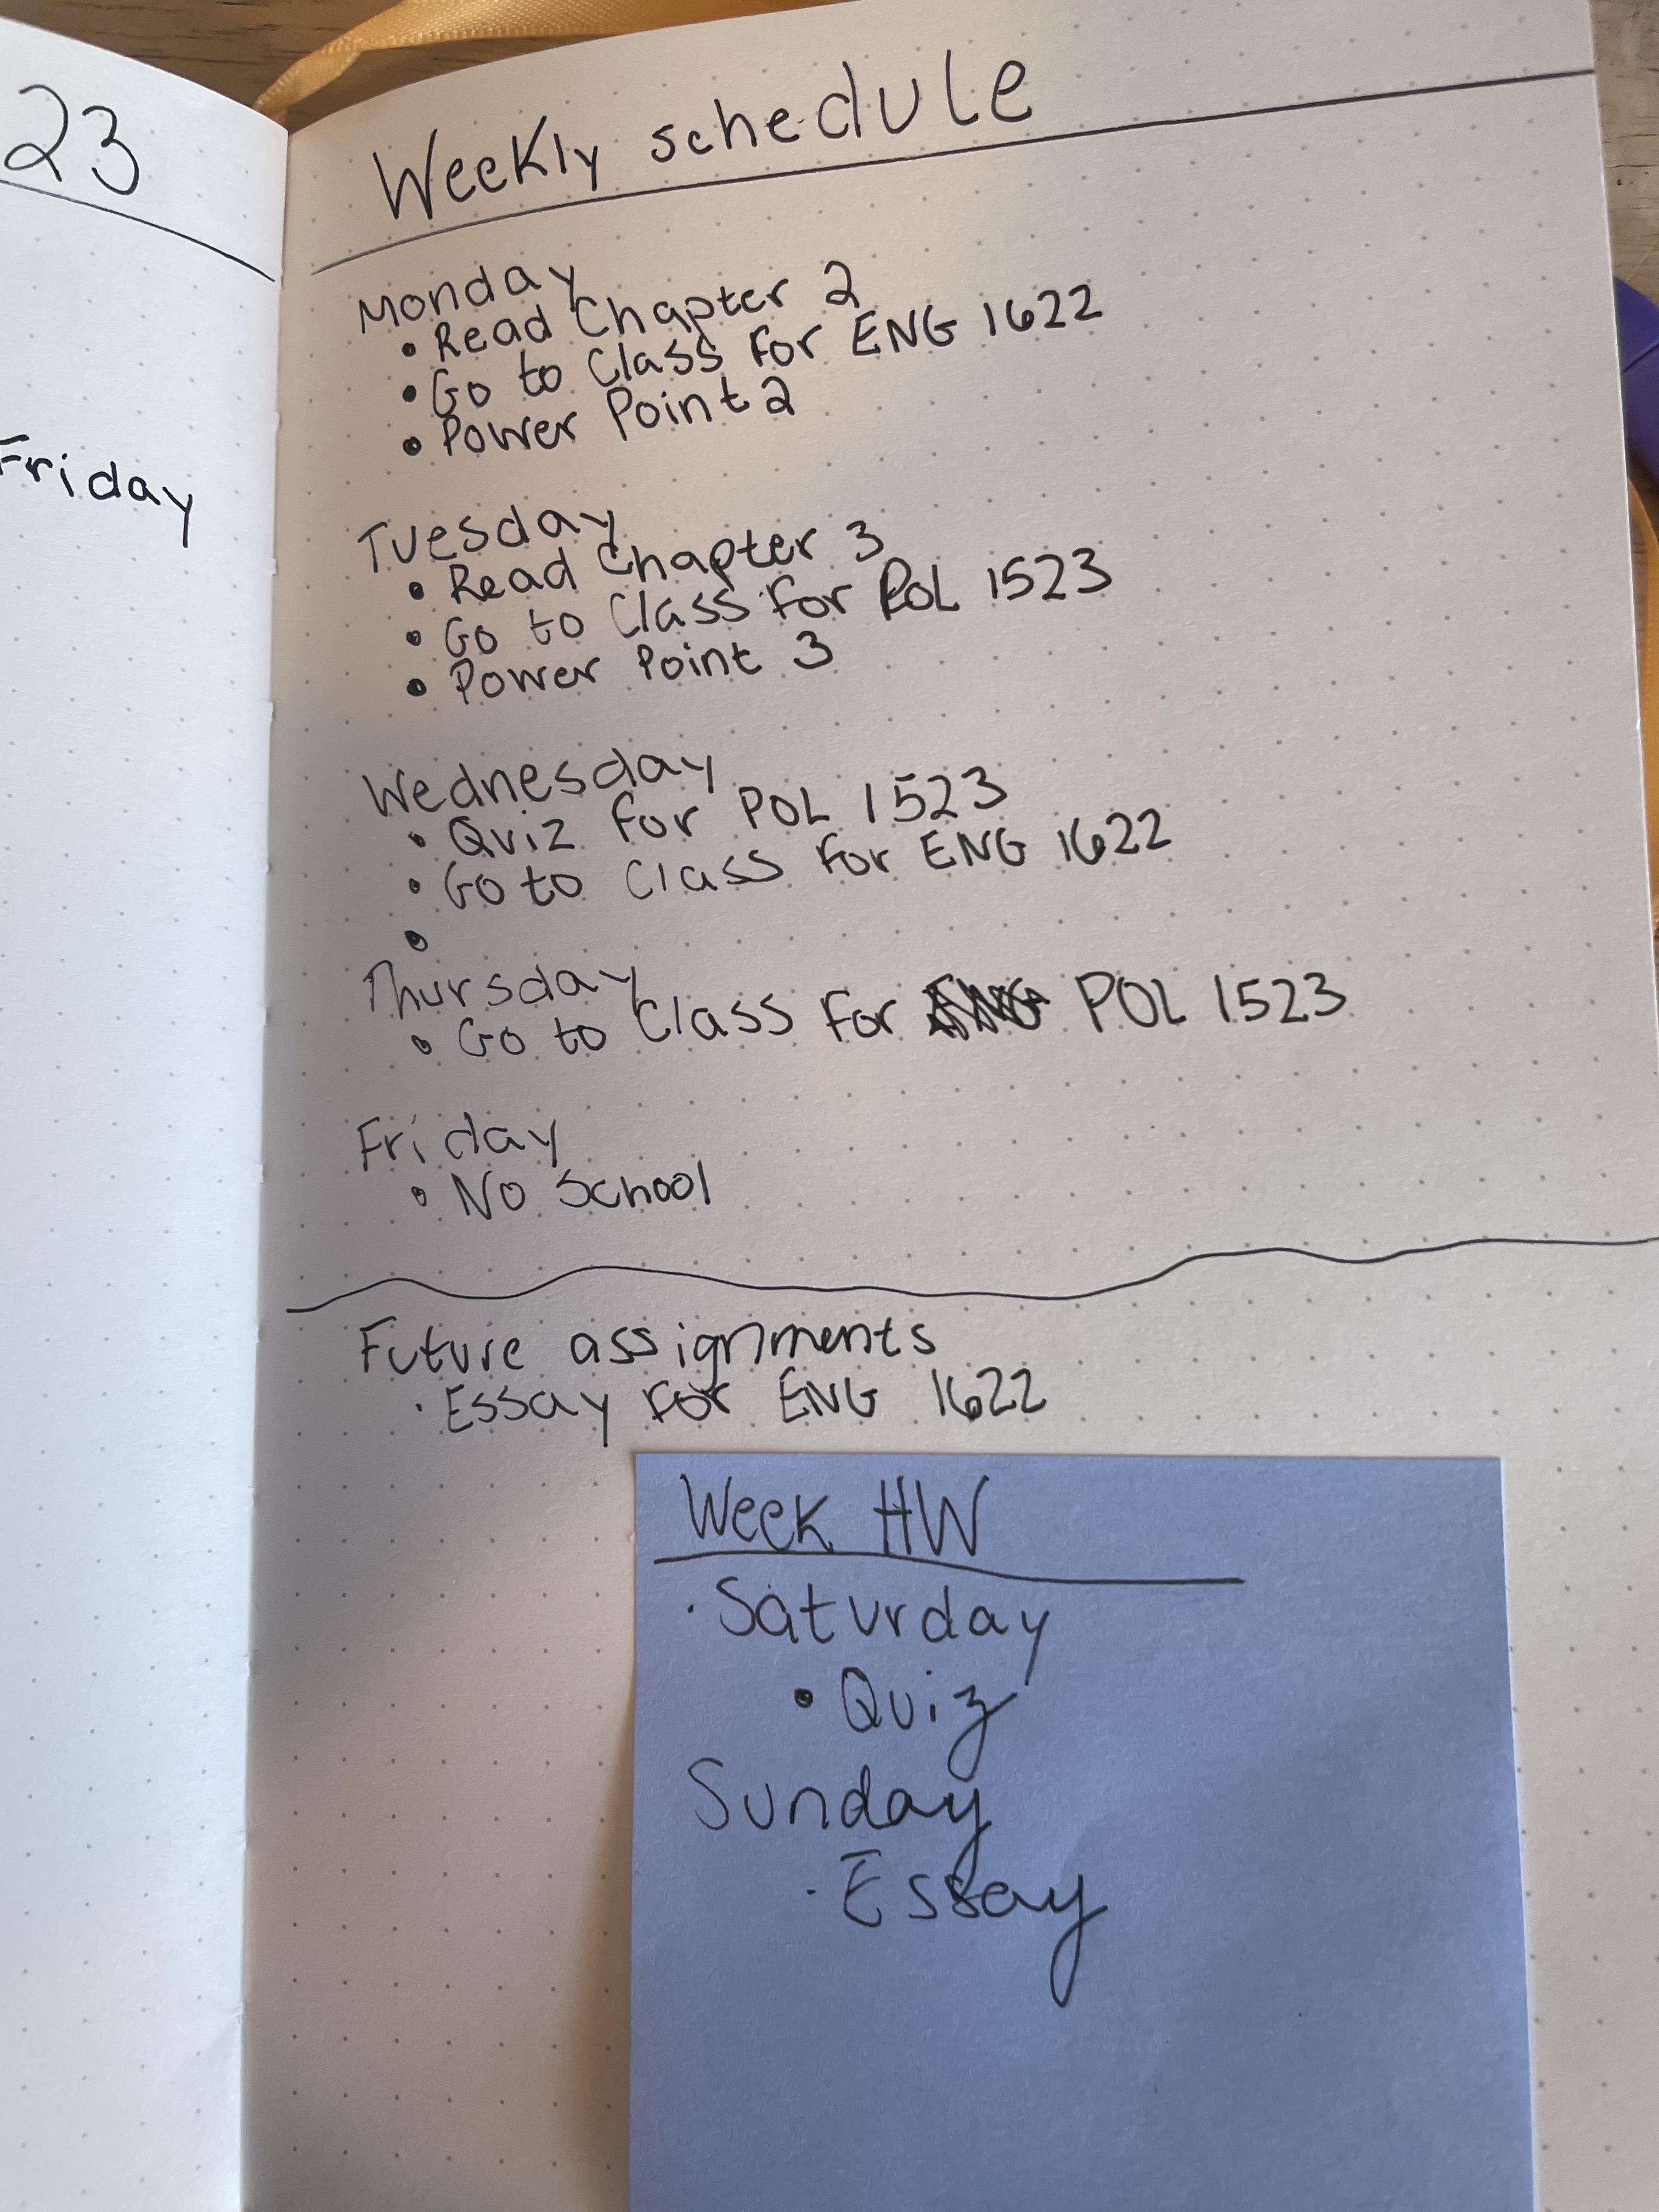 23
Friday
Weekly schedule
Monday
• Read Chapter 2
• Go to Class For ENG 1622
• Power Point 2
Tuesday
• Read Chapter 3
• Go to Class for POL 1523
• Power Point 3
Wednesday
• Quiz for POL 1523
• Go to Class For ENG 1622
•
Thursday
• Go to Class For POL 1523
Friday
• No School
Future assignments
• Essay For ENG 1622
Week HW
• Saturday
• Quiz
Sunday
• Essay